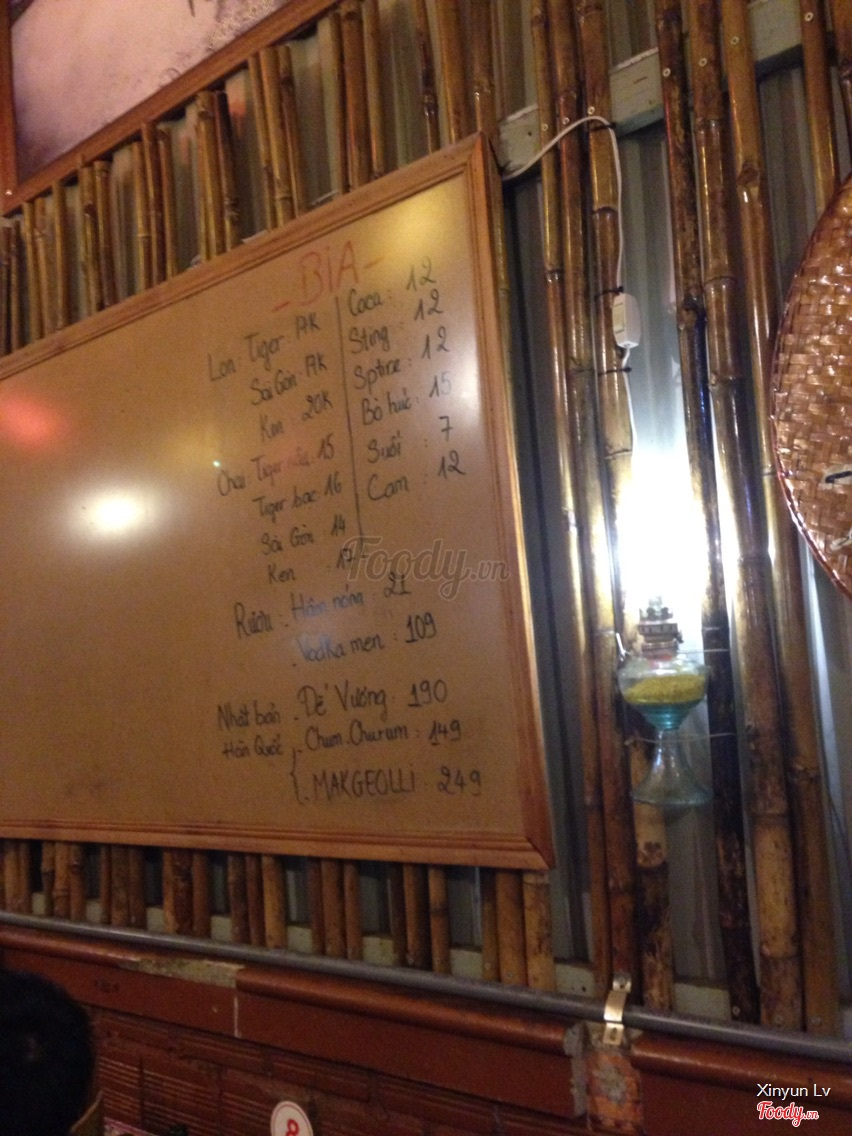 - BIA -
Lon: Tiger: 17K
Sài Gòn: 17K
Ken : 20K
Chai: Tiger nâu: 15
Tiger bạc: 16
Sài Gòn : 14
Ken : 17
Coca : 12
Sting : 12
Sptire : 12
Bò húc : 15
Suối : 7
Cam : 12
Rượu : Hâm nóng : 21
. Vodka men : 109
Nhật bản - Đế Vương : 190
Hàn Quốc . Chum.Churum : 149
. MAKGEOLLI : 249
Foody.vn
Xinyun Lv
Foody.vn